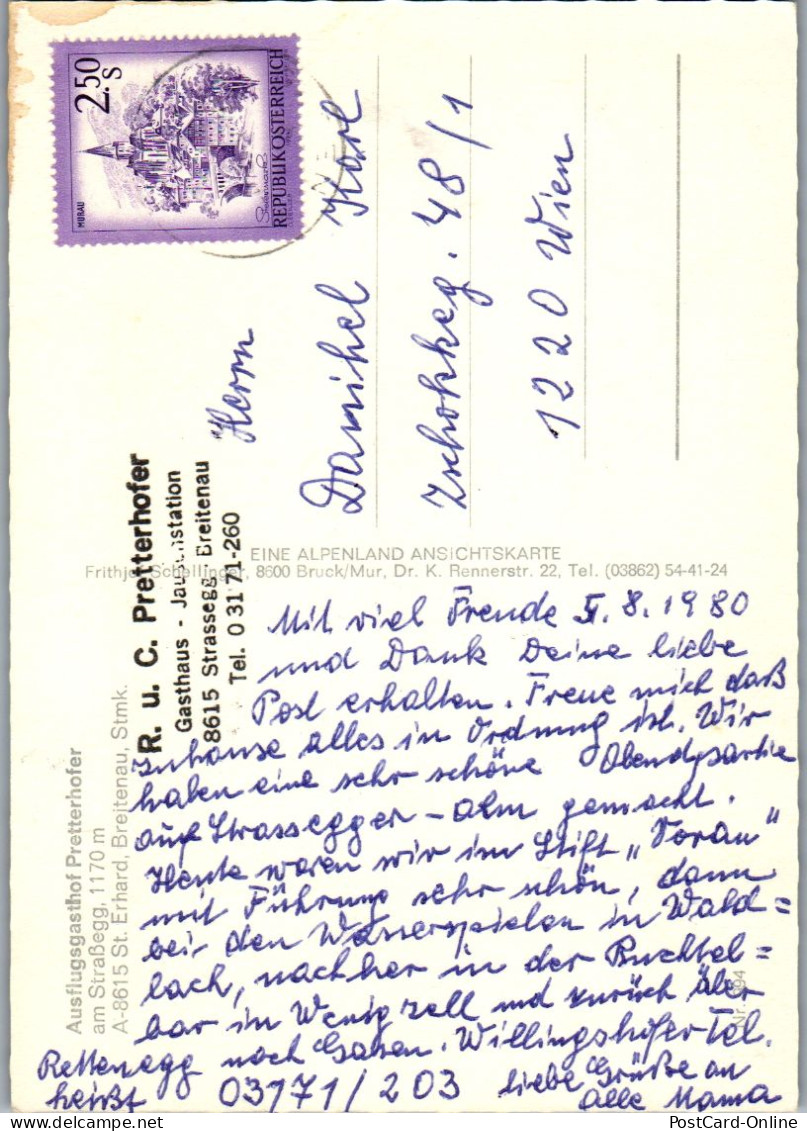 2.50
S
MURAU
REPUBLIK ÖSTERREICH
Herrn
Damihel Karl
Zschokkeg. 48/1
1220 Wien
R. u. C. Pretterhofer
Gasthaus - Jausenstation
8615 Strassegg, Breitenau
Tel. 0 31 71-260
EINE ALPENLAND ANSICHTSKARTE
Frithjof Schellinger, 8600 Bruck/Mur, Dr. K. Rennerstr. 22, Tel. (03862) 54-41-24
Ausflugsgasthof Pretterhofer
am Straßegg, 1170 m
A-8615 St. Erhard, Breitenau, Stmk.
Mit viel Freude 5.8.1980
und Dank Deine liebe
Post erhalten. Freue mich daß
zuhause alles in Ordnung ist. Wir
haben eine sehr schöne Abendpartie
auf Strassegger-alm gemacht.
Heute waren wir im Stift „Vorau"
mit Führung sehr schön, dann
bei den Wasserspielen in Wald=
bach, nachher in der Buchtel=
bar in Wenigzell und zurück über
Rettenegg nach Gasen. Willingshofer Tel.
heißt 03171/203 liebe Grüße an
alle Mama
PostCard-Online